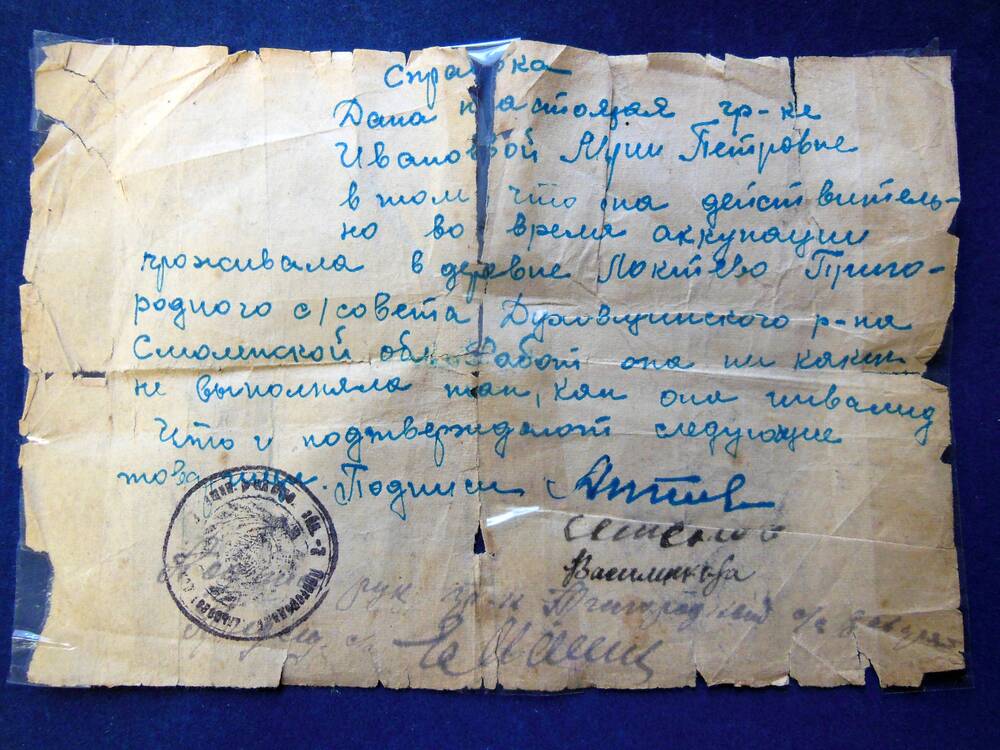 Справка
Дана настоящая гр-ке
Ивановой Марии Петровне
в том что она действитель-
но во время аккупации
проживала в деревне Локтево Приго-
родного с/совета Духовщинского р-на
Смоленской обл. Работ она ни каких
не выполняла так, как она инвалид
Что и подтверждают следующие
товарищи. Подписи
Василькова
рук гр-н Пригородный с/с